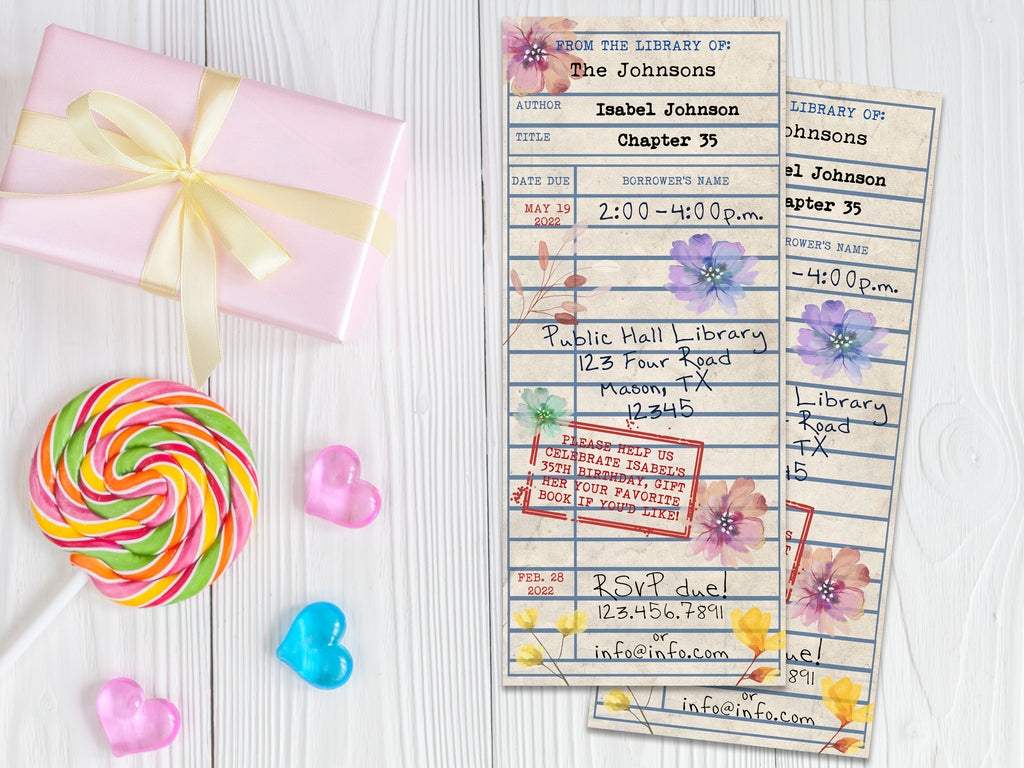 FROM THE LIBRARY OF:
The Johnsons
AUTHOR Isabel Johnson
TITLE Chapter 35
DATE DUE BORROWER'S NAME
MAY 19 2:00-4:00p.m.
2022
Public Hall Library
123 Four Road
Mason, TX
12345
PLEASE HELP US
CELEBRATE ISABEL'S
35TH BIRTHDAY, GIFT
HER YOUR FAVORITE
BOOK IF YOU'D LIKE!
FEB. 28 RSVP due!
2022 123.456.7891
or
info@info.com
LIBRARY OF:
ohnsons
el Johnson
apter 35
ROWER'S NAME
-4:00p.m.
Library
Road
TX
45
S
T
ue!
891
or
info@info.com